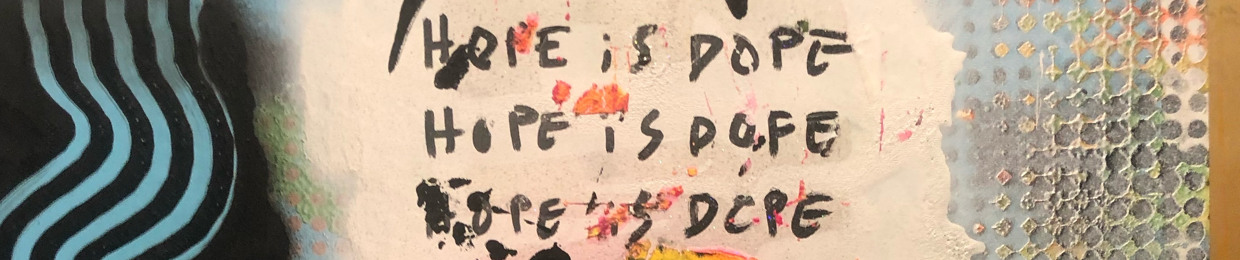 HOPE iS DOPE
HOPE iS DOPE
HOPE iS DOPE